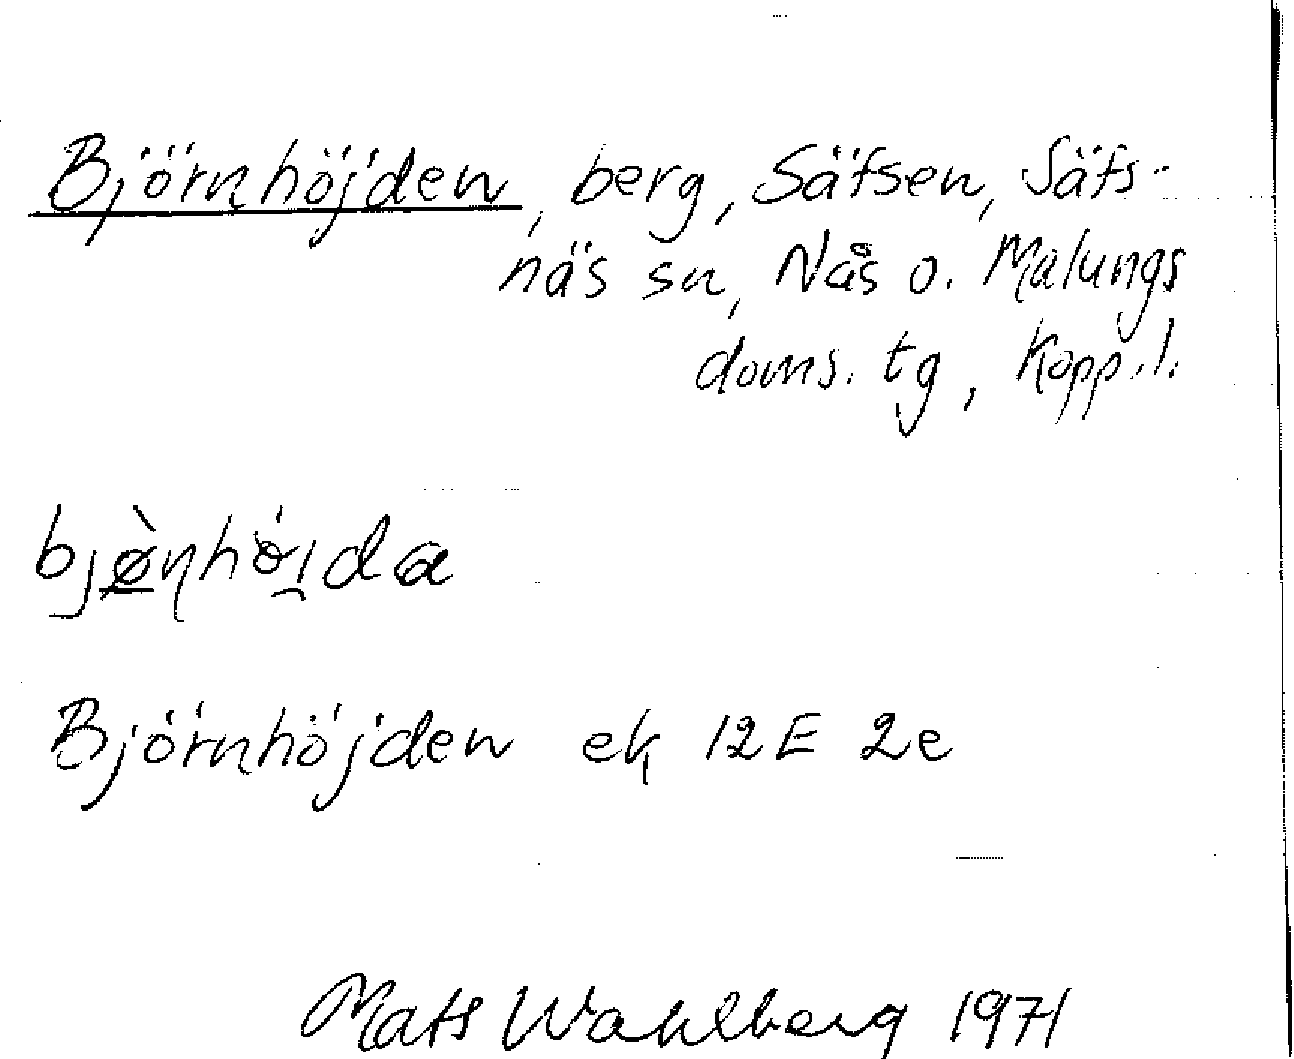 Björnhöjden, berg, Säfsen, Säfs-
näs sn, Nås o. Malungs
doms. tg, Kopp. l.
bjø̀nhö́i̯da
Björnhöjden ek 12E 2e
Mats Wahlberg 1971